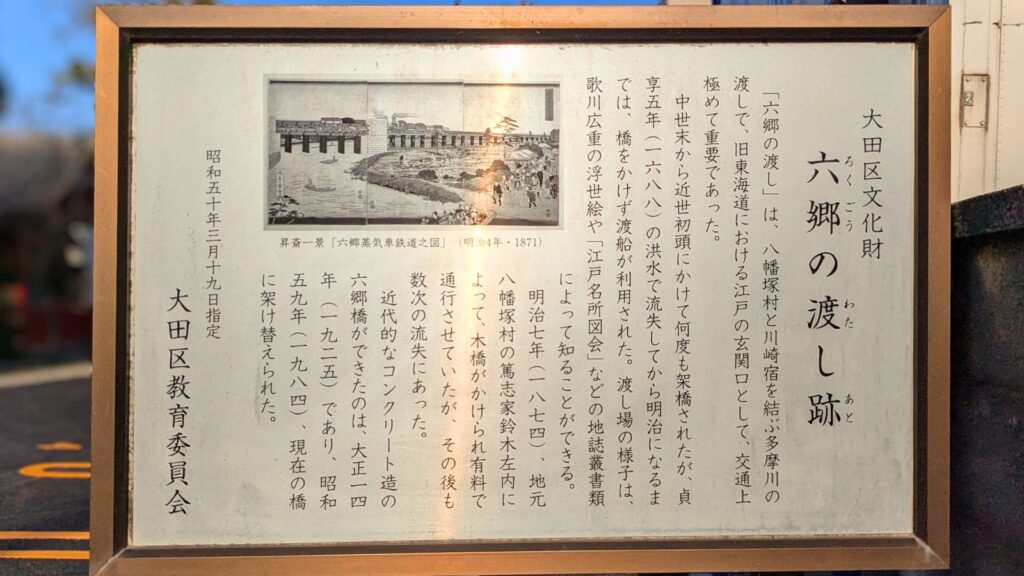 大田区文化財
六郷の渡し跡
ろくごう わた あと
「六郷の渡し」は、八幡塚村と川崎宿を結ぶ多摩川の
渡しで、旧東海道における江戸の玄関口として、交通上
極めて重要であった。
中世末から近世初頭にかけて何度も架橋されたが、貞
享五年（一六八八）の洪水で流失してから明治になるま
では、橋をかけず渡船が利用された。渡し場の様子は、
歌川広重の浮世絵や「江戸名所図会」などの地誌叢書類
によって知ることができる。
明治七年（一八七四）、地元
八幡塚村の篤志家鈴木左内に
よって、木橋がかけられ有料で
通行させていたが、その後も
数次の流失にあった。
近代的なコンクリート造の
六郷橋ができたのは、大正一四
年（一九二五）であり、昭和
五九年（一九八四）、現在の橋
に架け替えられた。
昇斎一景「六郷蒸気車鉄道之図」（明治4年・1871）
昭和五十年三月十九日指定
大田区教育委員会